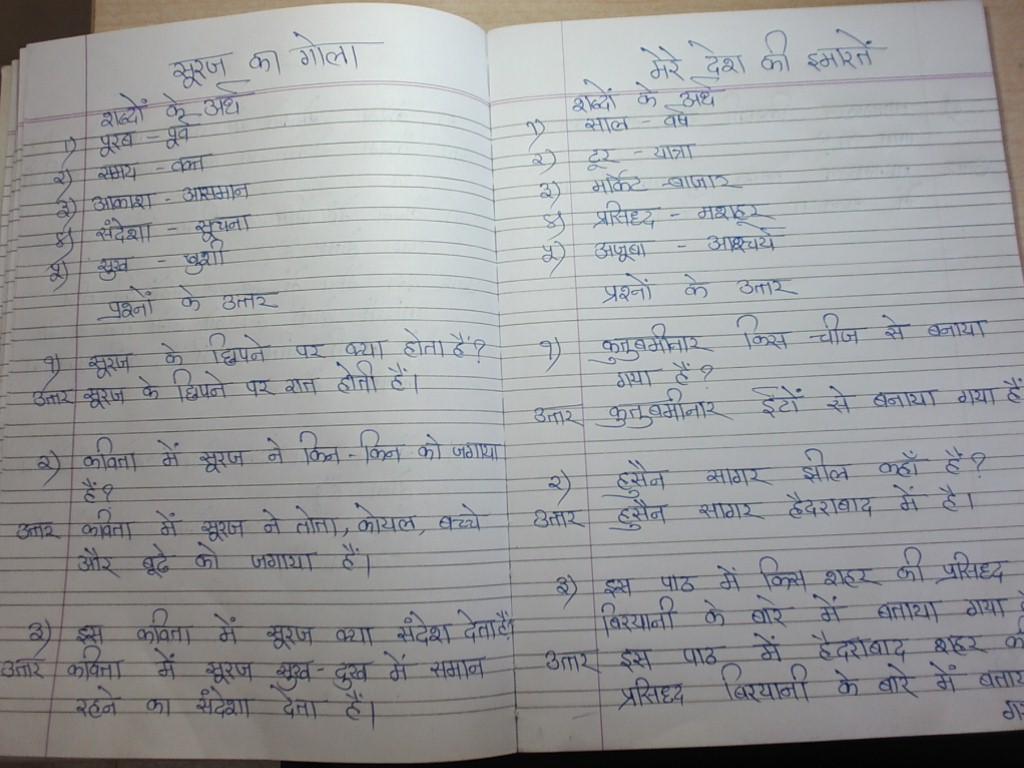 सूरज का गोला
शब्दों के अर्थ
१) पूरब - पूर्व
२) समय - वक्त
३) आकाश - आसमान
४) संदेशा - सूचना
५) सुख - खुशी
प्रश्नों के उत्तर
१) सूरज के छिपने पर क्या होता हैं?
उत्तर सूरज के छिपने पर रात होती हैं।
२) कविता में सूरज ने किन-किन को जगाया
हैं?
उत्तर कविता में सूरज ने तोता, कोयल, बच्चे
और बूढे को जगाया हैं।
३) इस कविता में सूरज क्या संदेश देता हैं?
उत्तर कविता में सूरज सुख-दुख में समान
रहने का संदेशा देता हैं।
मेरे देश की इमारतें
शब्दों के अर्थ
१) साल - वर्ष
२) टूर - यात्रा
३) मार्केट - बाजार
४) प्रसिध्द - मशहूर
५) अजूबा - आश्चर्य
प्रश्नों के उत्तर
१) कुतुबमीनार किस चीज से बनाया
गया हैं?
उत्तर कुतुबमीनार ईटों से बनाया गया हैं
२) हुसैन सागर झील कहाँ हैं?
उत्तर हुसैन सागर हैदराबाद में है।
३) इस पाठ में किस शहर की प्रसिध्द
बिरयानी के बारे में बताया गया
उत्तर इस पाठ में हैदराबाद शहर की
प्रसिध्द बिरयानी के बारे में बताय